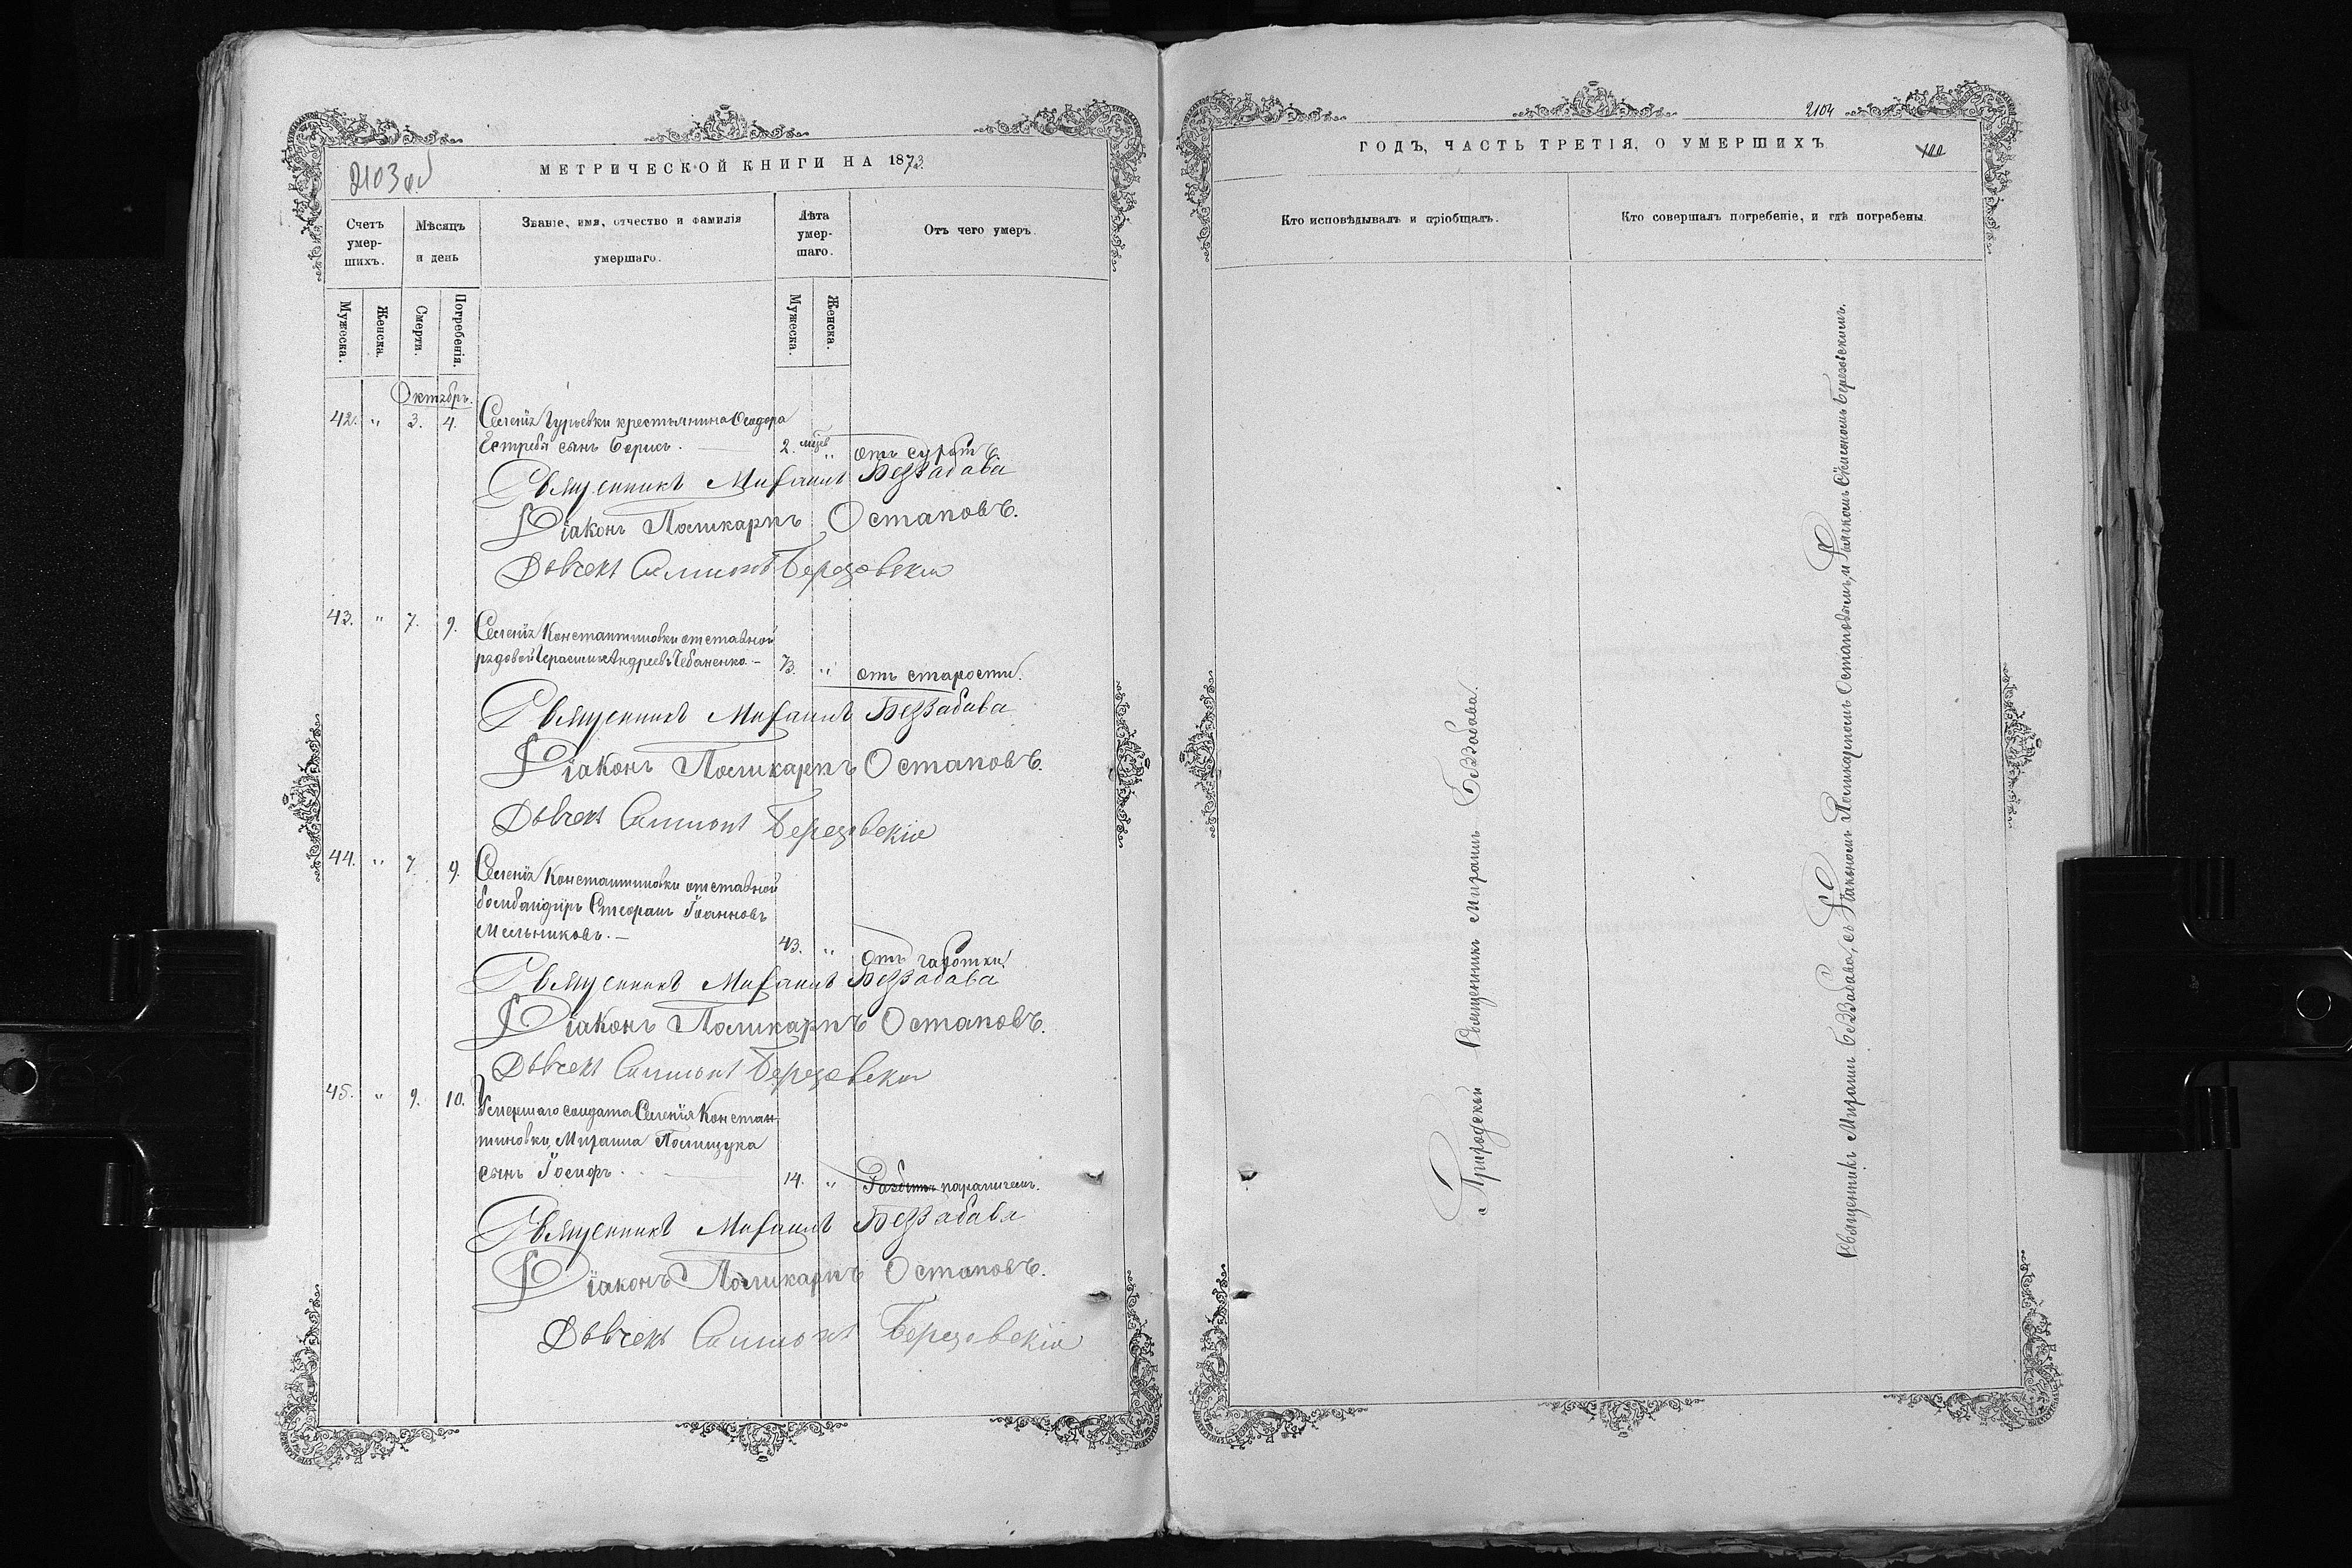 2103 об
МЕТРИЧЕСКОЙ КНИГИ НА 1873
Счетъ умер-шихъ.
Мѣсяцъ и день
Званіе, имя, отчество и фамилія умершаго.
Лѣта умер-шаго.
Отъ чего умеръ.
Мужеска.
Женска.
Смерти.
Погребенія.
Мужеска.
Женска.
Октябрь.
42. " 3. 4. Селенія Гурьевки крестьянина Ѳеодора
сынъ Борисъ. 2. мѣсяц " отъ
Священникъ Михаилъ Беззабава
Діаконъ Поликарпъ Остаповъ.
Дьячекъ Симеонъ Березовскій
43. " 7. 9. Селенія Константиновки отставной
рядовой Герасимъ Андреевъ Чебаненко. - 73. " отъ старости.
Священникъ Михаилъ Беззабава
Діаконъ Поликарпъ Остаповъ.
Дьячекъ Симеонъ Березовскій
44. " 7. 9. Селенія Константиновки отставной
бомбандиръ Стефанъ Іоанновъ
Мельниковъ. - 43. " отъ чахотки.
Священникъ Михаилъ Беззабава
Діаконъ Поликарпъ Остаповъ.
Дьячекъ Симеонъ Березовскій
45. " 9. 10. Умершаго солдата Селенія Констан-
тиновки, Михаила Полищука
сынъ Іосифъ. 14. " параличемъ.
Священникъ Михаилъ Беззабава
Діаконъ Поликарпъ Остаповъ.
Дьячекъ Симеонъ Березовскій
2104
ГОДЪ, ЧАСТЬ ТРЕТІЯ, О УМЕРШИХЪ
100
Кто исповѣдывалъ и пріобщалъ.
Кто совершалъ погребеніе, и гдѣ погребены.
Приходскій Священникъ Михаилъ Беззабава.
Священникъ Михаилъ Беззабава, съ Діакономъ Поликарпомъ Остаповымъ, и Дьячкомъ Симеономъ Березовскимъ.